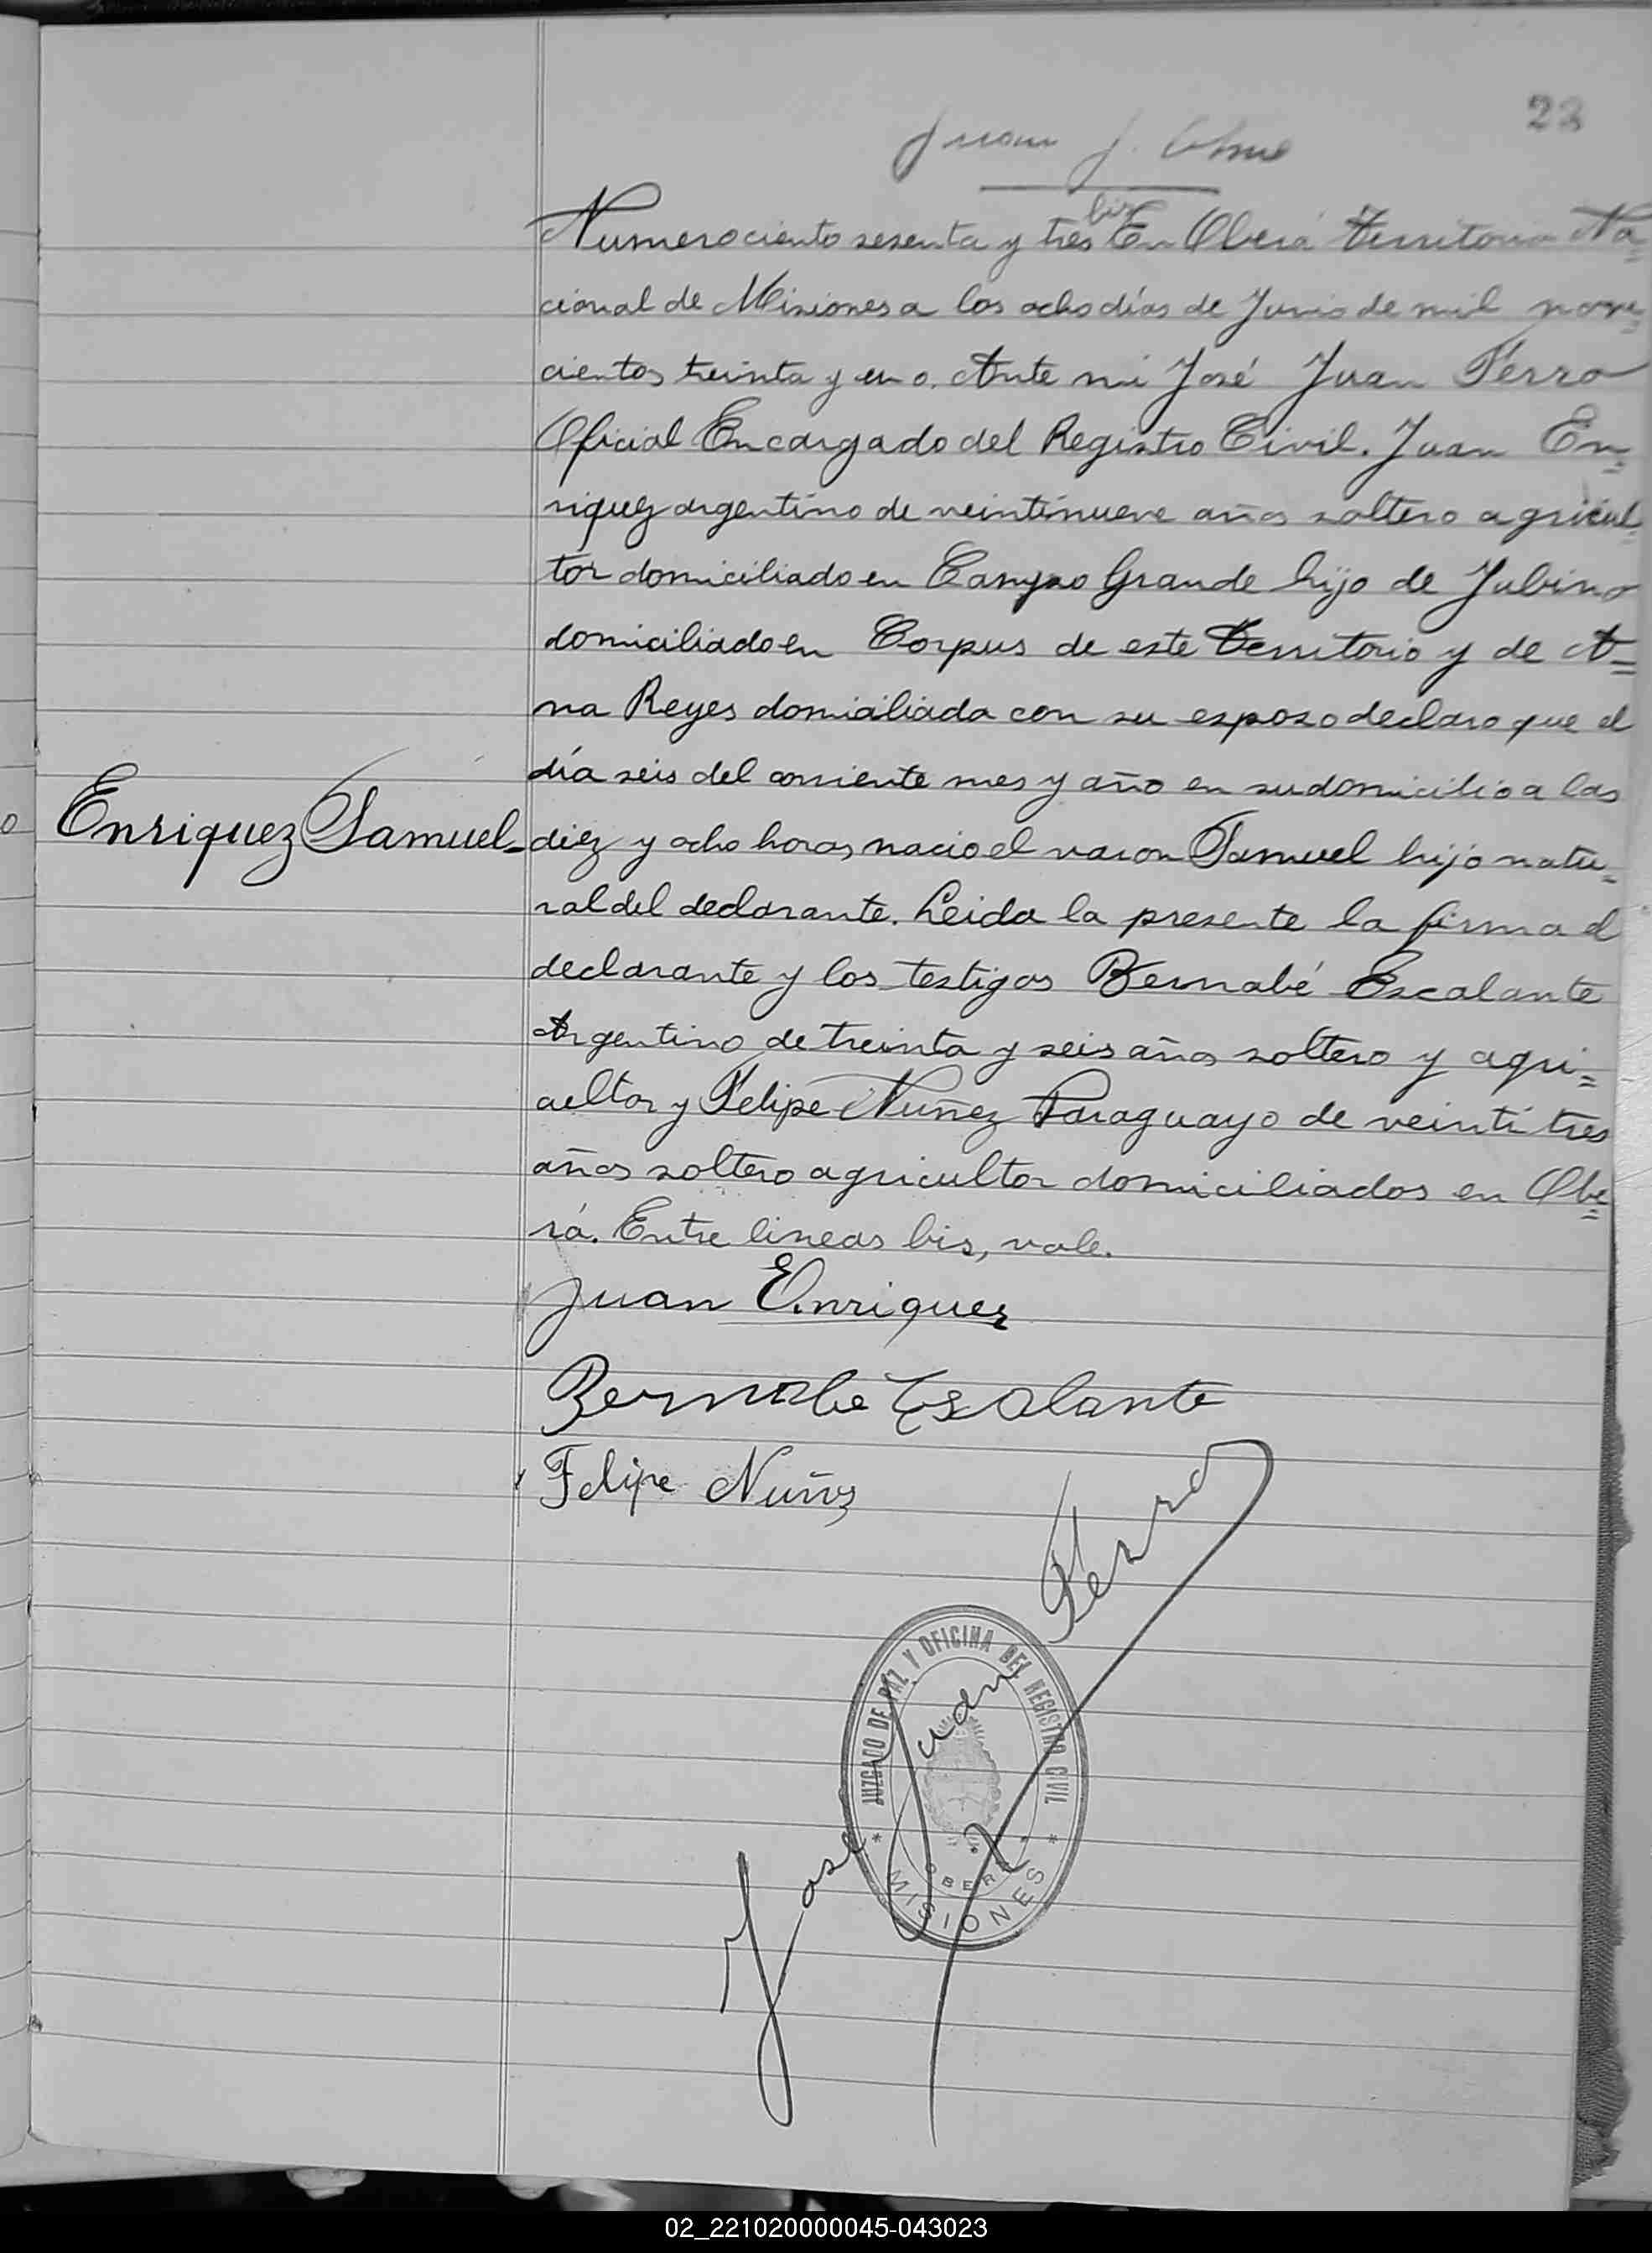 23
Juan J.
bis
Numero ciento sesenta y tres En Oberá Territorio Na=
cional de Misiones a los ocho días de Junio de mil nove=
cientos treinta y uno. Ante mi José Juan Ferro
Oficial Encargado del Registro Civil. Juan En=
riquez argentino de veintinueve años soltero agricul=
tor domiciliado en Campo Grande hijo de Jubino
domiciliado en Corpus de este Territorio y de A=
na Reyes domiciliada con su esposo declaro que el
día seis del corriente mes y año en su domicilio a las
Enriquez Samuel- diez y ocho horas nacio el varon Samuel hijo natu=
ral del declarante. Leida la presente la firma el
declarante y los testigos Bernabé Escalante
Argentino de treinta y seis años soltero y agri=
cultor y Felipe Nuñez Paraguayo de veinti tres
años soltero agricultor domiciliados en Obe=
rá. Entre lineas bis, vale.
Juan Enriquez
Bernabe Escalante
Felipe Nuñez
José Juan Ferro
JUZGADO DE PAZ Y OFICINA DEL REGISTRO CIVIL
* MISIONES *
OBERÁ
02_221020000045-043023